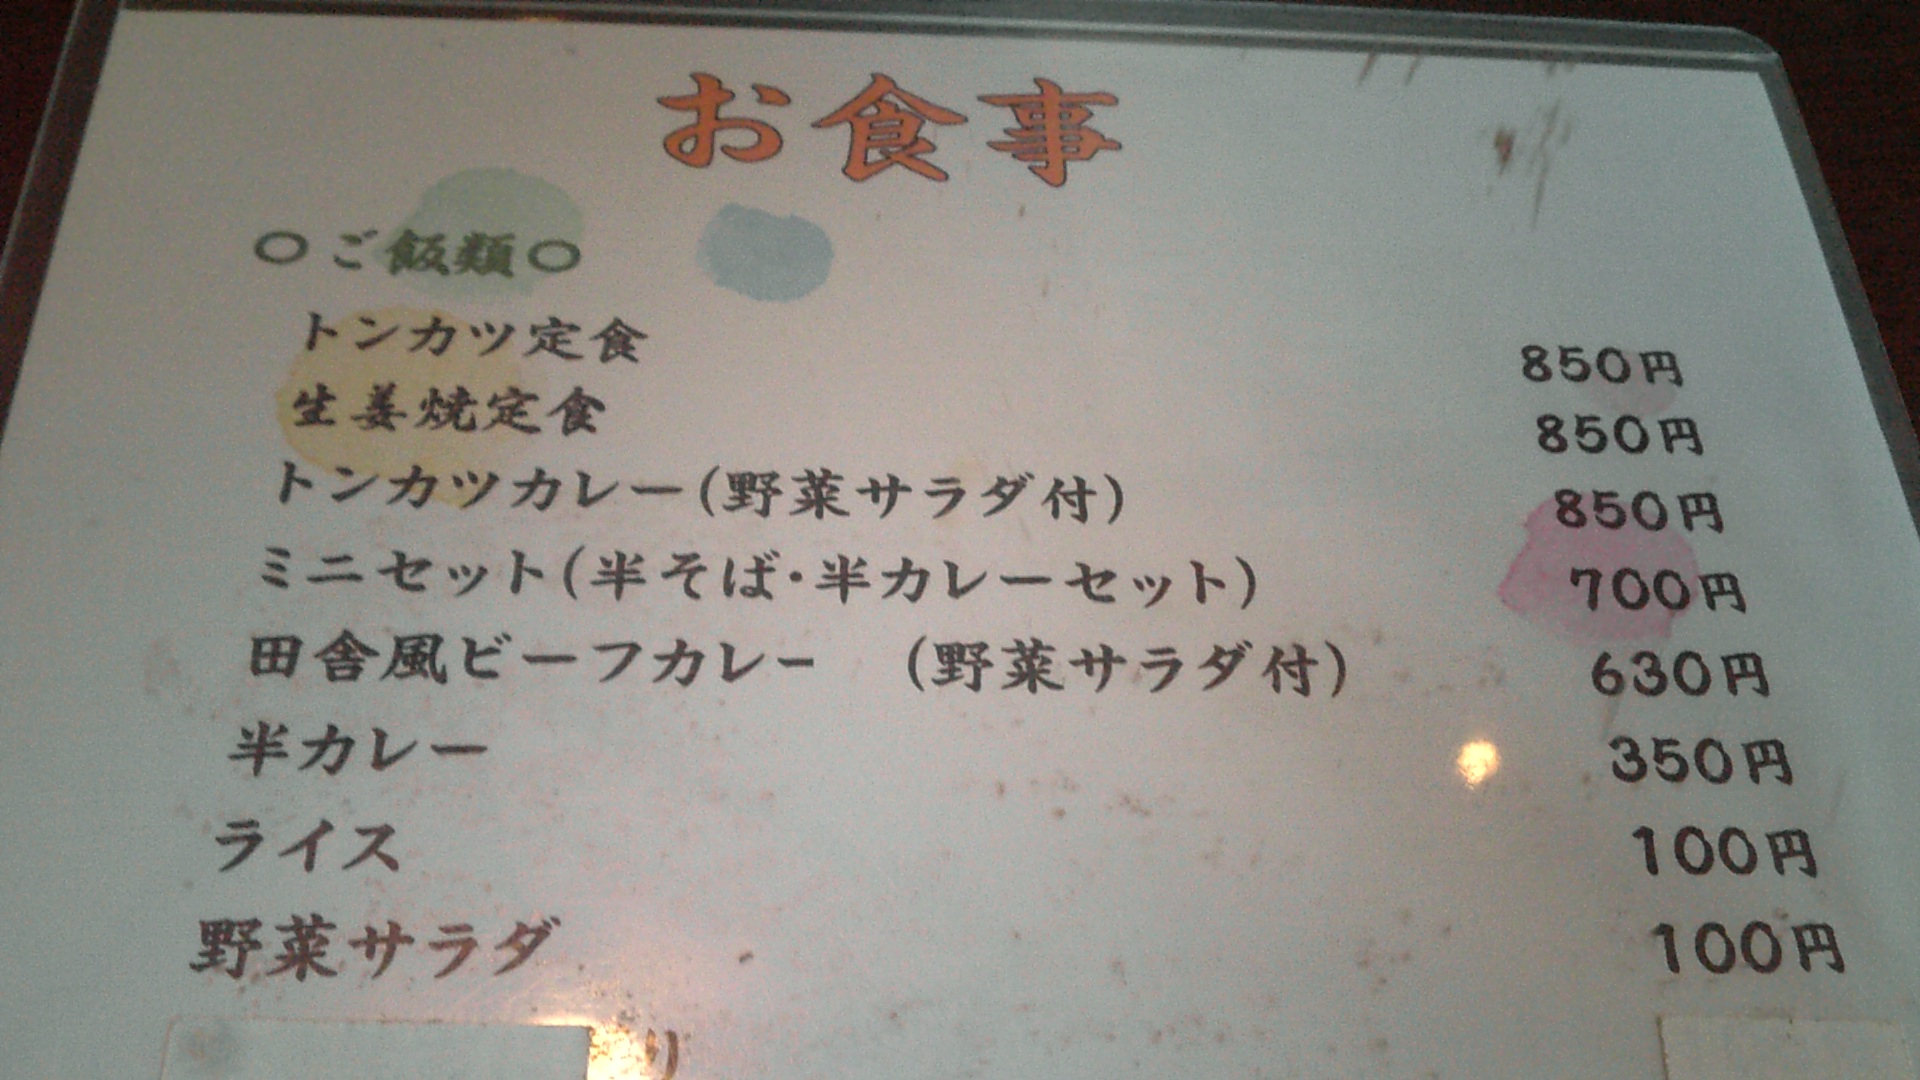 お食事
○ご飯類○
トンカツ定食 850円
生姜焼定食 850円
トンカツカレー(野菜サラダ付) 850円
ミニセット(半そば・半カレーセット) 700円
田舎風ビーフカレー (野菜サラダ付) 630円
半カレー 350円
ライス 100円
野菜サラダ 100円